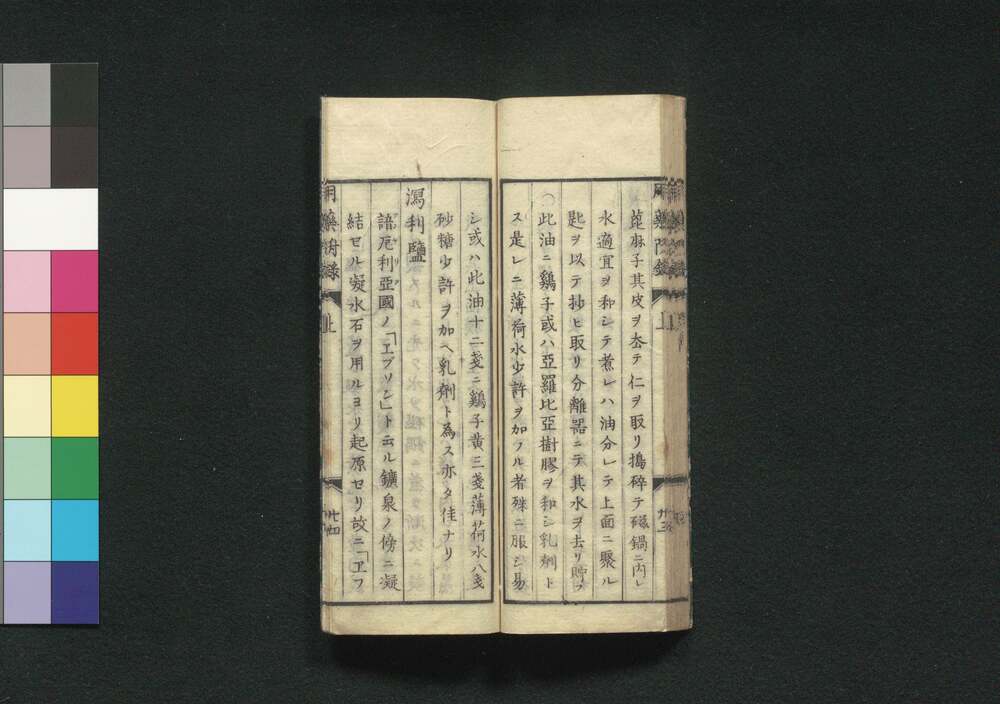 蓖麻子其皮ヲ去テ仁ヲ取リ搗碎テ磁鍋ニ内レ
水適宜ヲ和シテ煮レハ油分レテ上面ニ聚ル
匙ヲ以テ抄ヒ取リ分離器ニテ其水ヲ去リ貯フ
〇此油ニ鷄子或ハ亞羅比亞樹膠ヲ和シ乳劑ト
ス是レニ薄荷水少許ヲ加フル者殊ニ服シ易
シ或ハ此油十二戔ニ鷄子黄三戔薄荷水八戔
砂糖少許ヲ加ヘ乳劑ト為ス亦タ佳ナリ
瀉利鹽
諳厄利亞國ノ「ヱプソン」ト云ル鑛泉ノ傍ニ凝
結セル凝水石ヲ用ルヨリ起原セリ故ニ「ヱフ
用藥附録
上
廿三
廿四